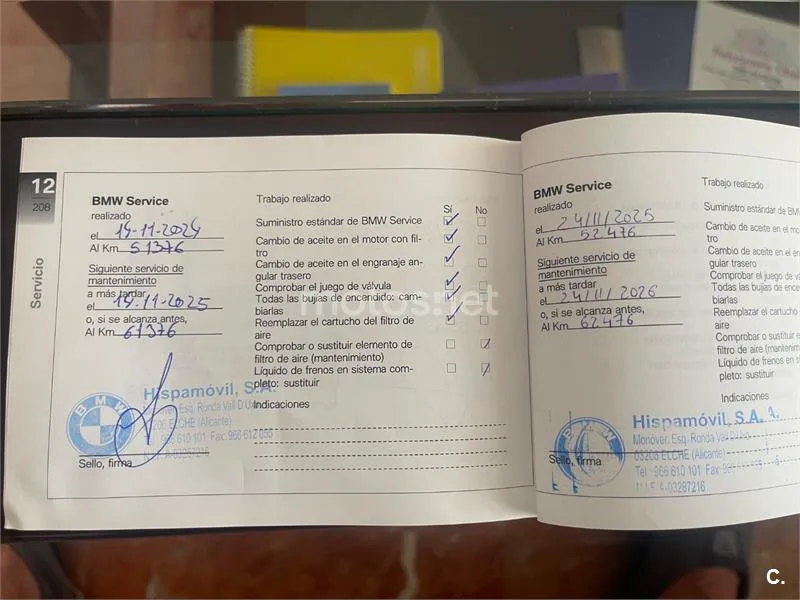 12
208
Servicio
BMW Service
realizado
el 14-11-2024
Al Km 51376
Siguiente servicio de
mantenimiento
a más tardar
el 14.11-2025
o, si se alcanza antes,
Al Km 61376
Sello, firma
BMW
Hispamóvil, S.A.
Monóver, Esq. Ronda Vall D'U
206 ELCHE (Alicante)
966 610 101 Fax: 966 612 055
A-03287216
Trabajo realizado
Sí No
Suministro estándar de BMW Service
Cambio de aceite en el motor con fil-
tro
Cambio de aceite en el engranaje an-
gular trasero
Comprobar el juego de válvula
Todas las bujias de encendido: cam-
biarlas
Reemplazar el cartucho del filtro de
aire
Comprobar o sustituir elemento de
filtro de aire (mantenimiento)
Líquido de frenos en sistema com-
pleto: sustituir
Indicaciones
BMW Service
realizado
el 24/11/2025
Al Km 52476
Siguiente servicio de
mantenimiento
a más tardar
el 24/11/2026
o, si se alcanza antes,
Al Km 62476
Sello, firma
Hispamóvil, S.A.
Monóver, Esq. Ronda Vall
03206 ELCHE (Alicante)
Tel.: 966 610 101 Fax:
N.I.F. A-03287216
Trabajo realizado
Suministro estándar de BM
Cambio de aceite en el mo
tro
Cambio de aceite en el en
gular trasero
Comprobar el juego de vá
Todas las bujias de encen
biarlas
Reemplazar el cartucho d
aire
Comprobar o sustituir e
filtro de aire (mantenim
Líquido de frenos en sis
pleto: sustituir
Indicaciones
motos.net
C.